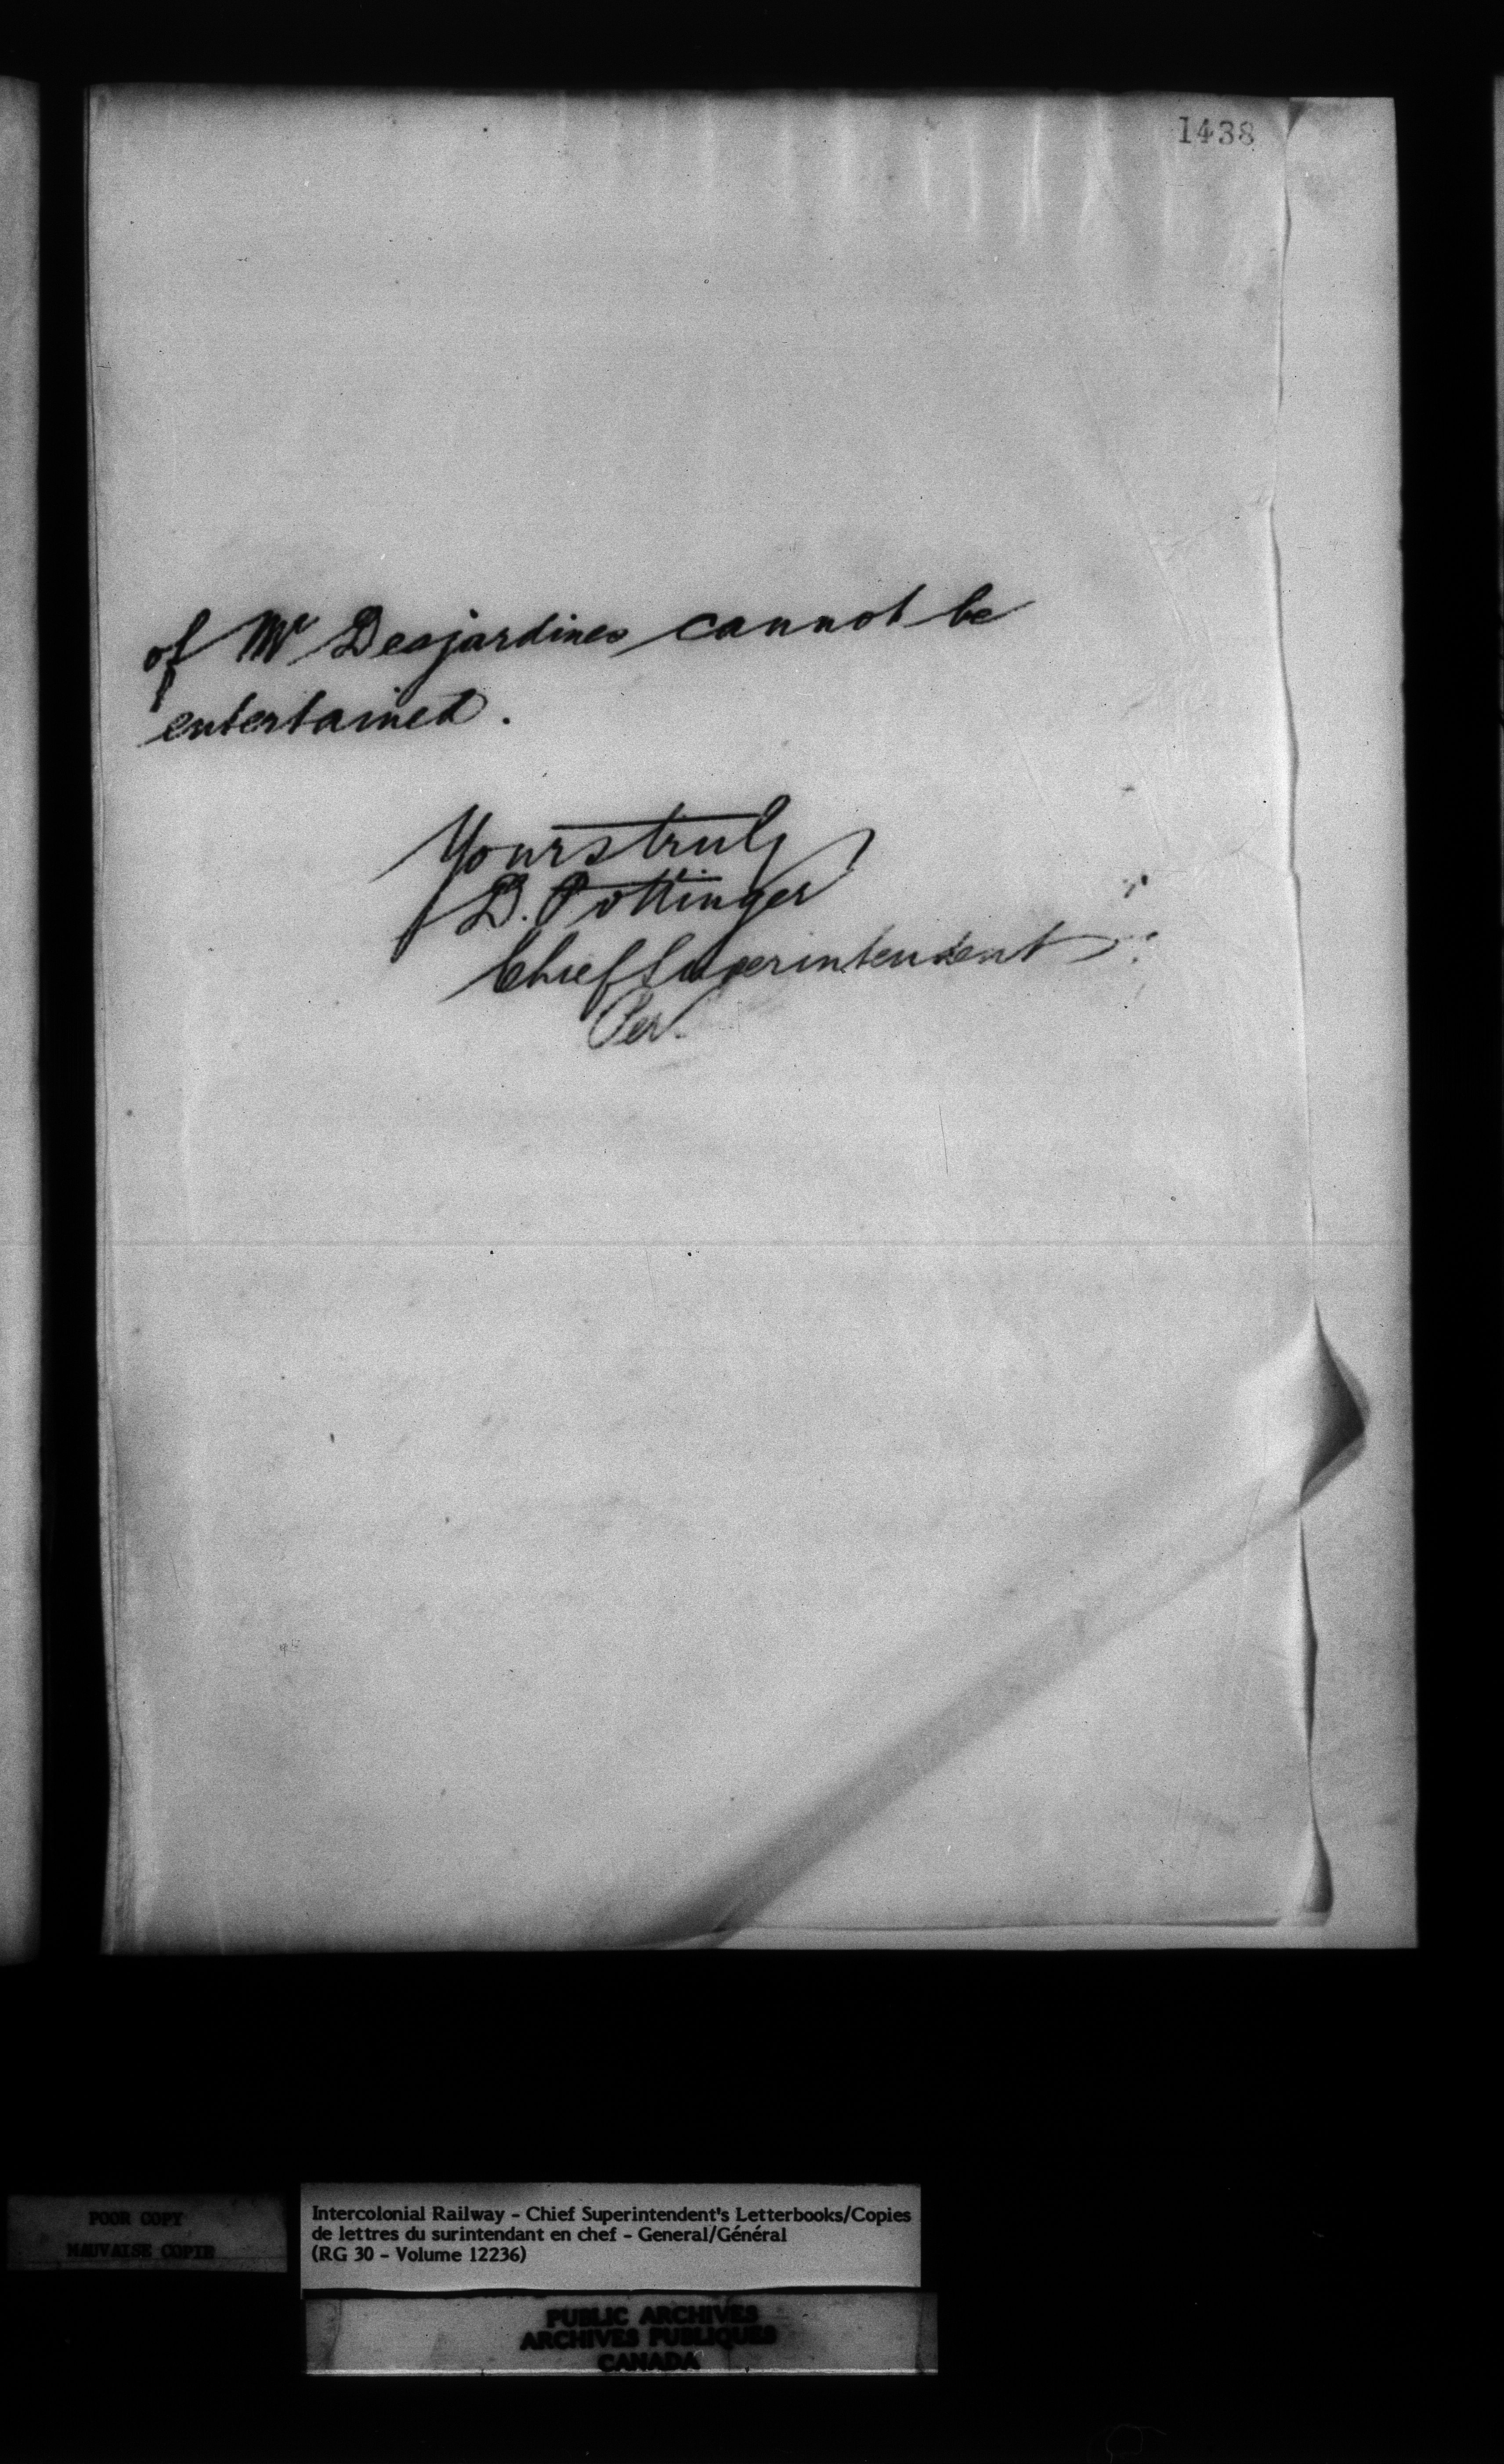 1438
of Mr Desjardines cannot be
entertained.
Yours truly
D. Pottinger
Chief Superintendent
Per.
POOR COPY
MAUVAISE COPIE
Intercolonial Railway - Chief Superintendent's Letterbooks/Copies
de lettres du surintendant en chef - General/Général
(RG 30 - Volume 12236)
PUBLIC ARCHIVES
ARCHIVES PUBLIQUES
CANADA